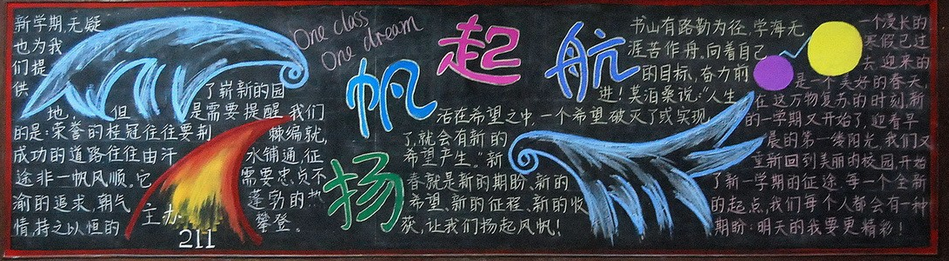 One class
One dream
扬帆起航
新学期,无疑
也为我
们提
供了崭新的园
地,但是需要提醒我们
的是:荣誉的桂冠往往要荆棘编就,
成功的道路往往由汗水铺通,征
途非一帆风顺。它需要忠贞不
渝的追求,朝气蓬勃的热
情,持之以恒的攀登。
主办
211
书山有路勤为径,学海无
涯苦作舟。向着自己
的目标,奋力前
进!莫泊桑说:"人生
活在希望之中,一个希望破灭了或实现
了,就会有新的
希望产生。"新
春就是新的期盼、新的
希望、新的征程、新的收
获,让我们扬起风帆!
一个漫长的
寒假已过
去,迎来的
是一个美好的春天,
在这万物复苏的时刻,新
的一学期又开始了,迎着早
晨的第一缕阳光,我们又
重新回到美丽的校园,开始
了新一学期的征途。每一个全新
的起点,我们每个人都会有一种
期盼:明天的我要更精彩!